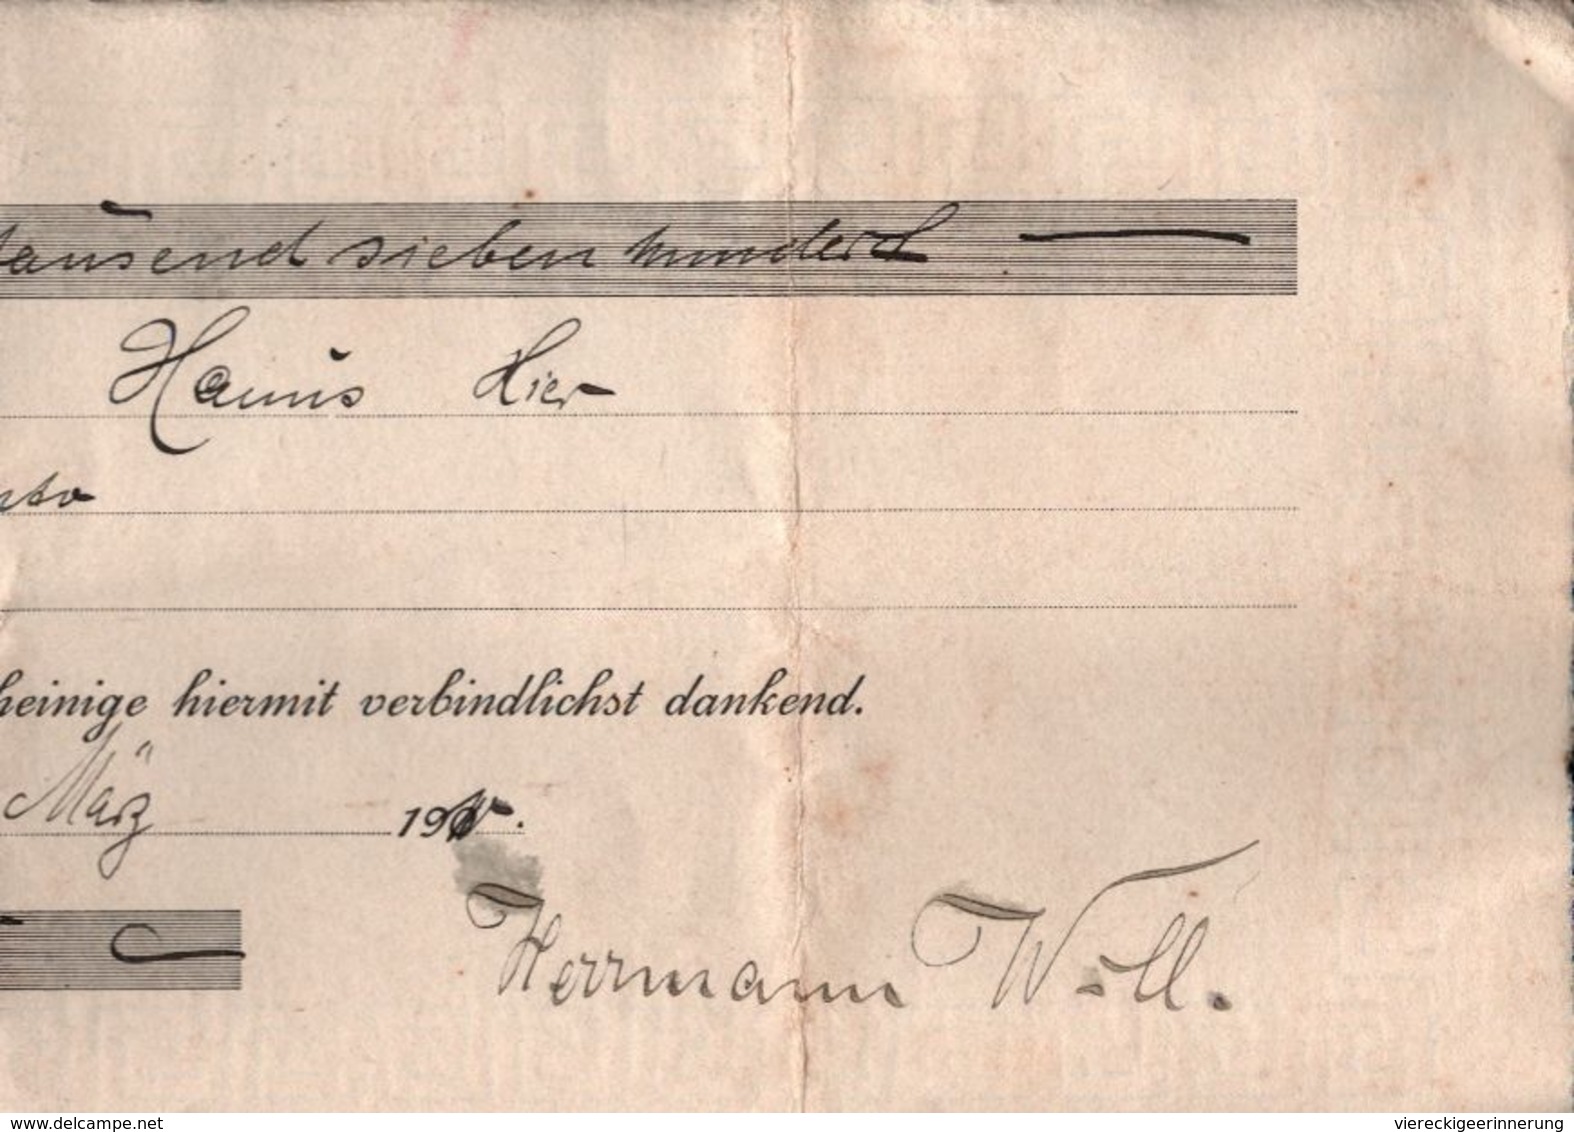 tausend sieben hundert
Hanns Hier
nto
heinige hiermit verbindlichst dankend.
März 19
Herrmann Woll.
delcampe.net
viereckigeerinnerung